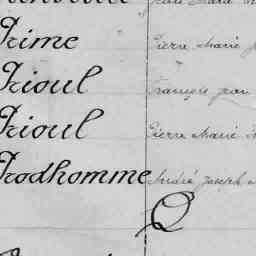 Prime Pierre Marie
Prioul François Jean
Prioul Pierre Marie
Prodhomme André Joseph
Q